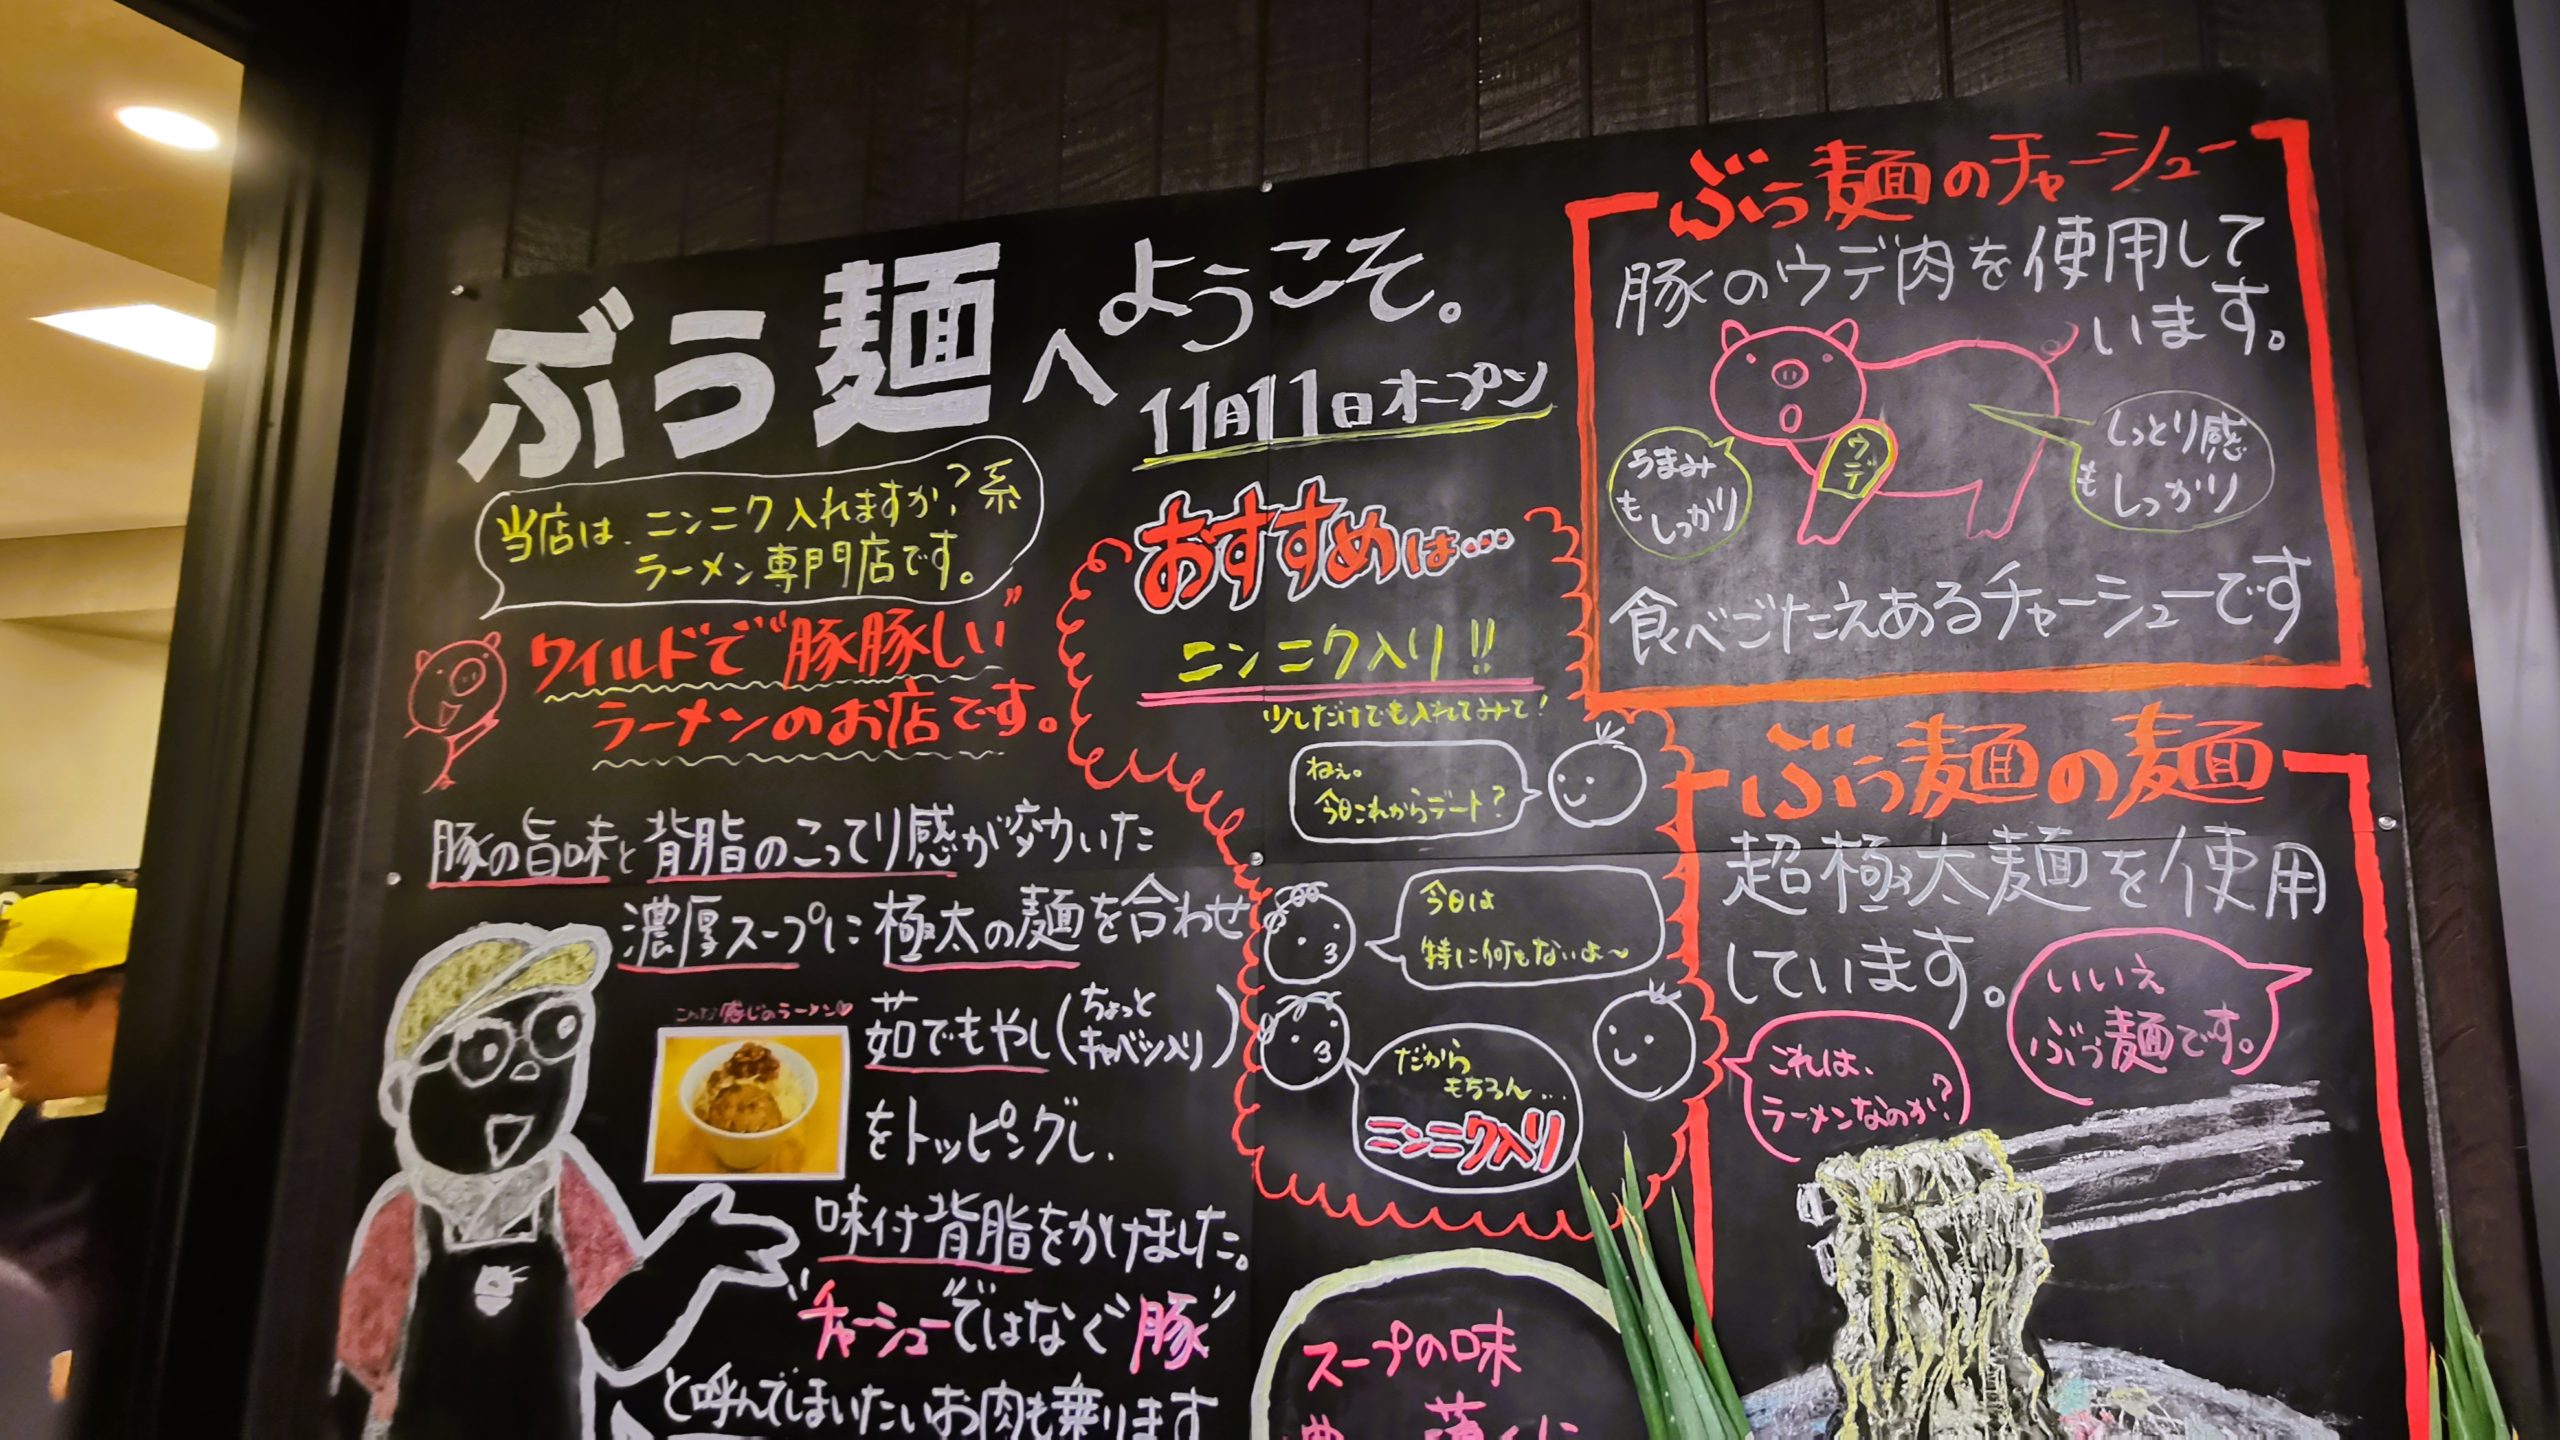 ぶぅ麺へようこそ。
11月11日オープン
当店は、ニンニク入れますか?系
ラーメン専門店です。
ワイルドで"豚豚しい"
ラーメンのお店です。
豚の旨味と背脂のこってり感が効いた
濃厚スープに極太の麺を合わせ
茹でもやし(ちょっと
キャベツ入り)
をトッピングし、
味付背脂をかけました。
"チャーシュー"ではなく"豚"
と呼んでしまいたいお肉も乗ります
こんな感じのラーメン♡
おすすめは…
ニンニク入り!!
少しだけでも入れてみて!
ねぇ。
今日これからデート?
今日は
特に何もないよ〜
だから
もちろん…
ニンニク入り
スープの味
ぶぅ麺のチャーシュー
豚のウデ肉を使用して
います。
ウデ
うまみ
も
しっかり
しっとり感
も
しっかり
食べごたえあるチャーシューです
ぶぅ麺の麺
超極太麺を使用
しています。
これは、
ラーメンなのか?
いいえ
ぶぅ麺です。